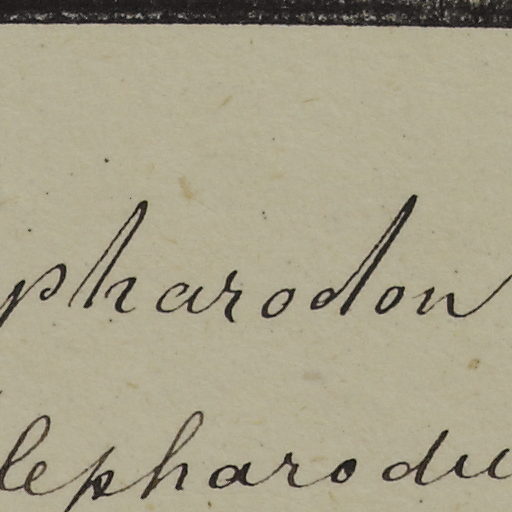 pharodon
lepharodu